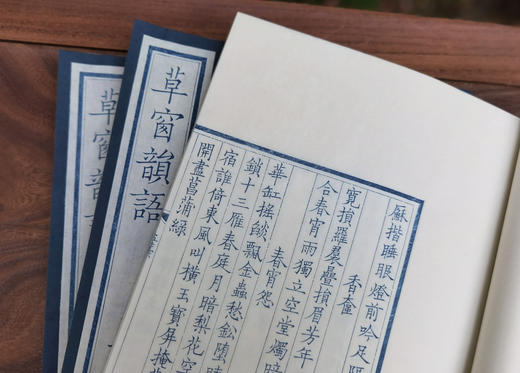 揩睡眼燈前吟足
香奩
寬損羅裠疊損眉芳年
合春宵雨獨立空堂燭暗
春宵怨
華缸搖燄飄金蟲愁鈆墮
鎖十三雁春庭月暗梨花空
宿誰倚東風叫橫玉寶屏掩
開盡菖蒲綠
草窗韻語
草窗韻